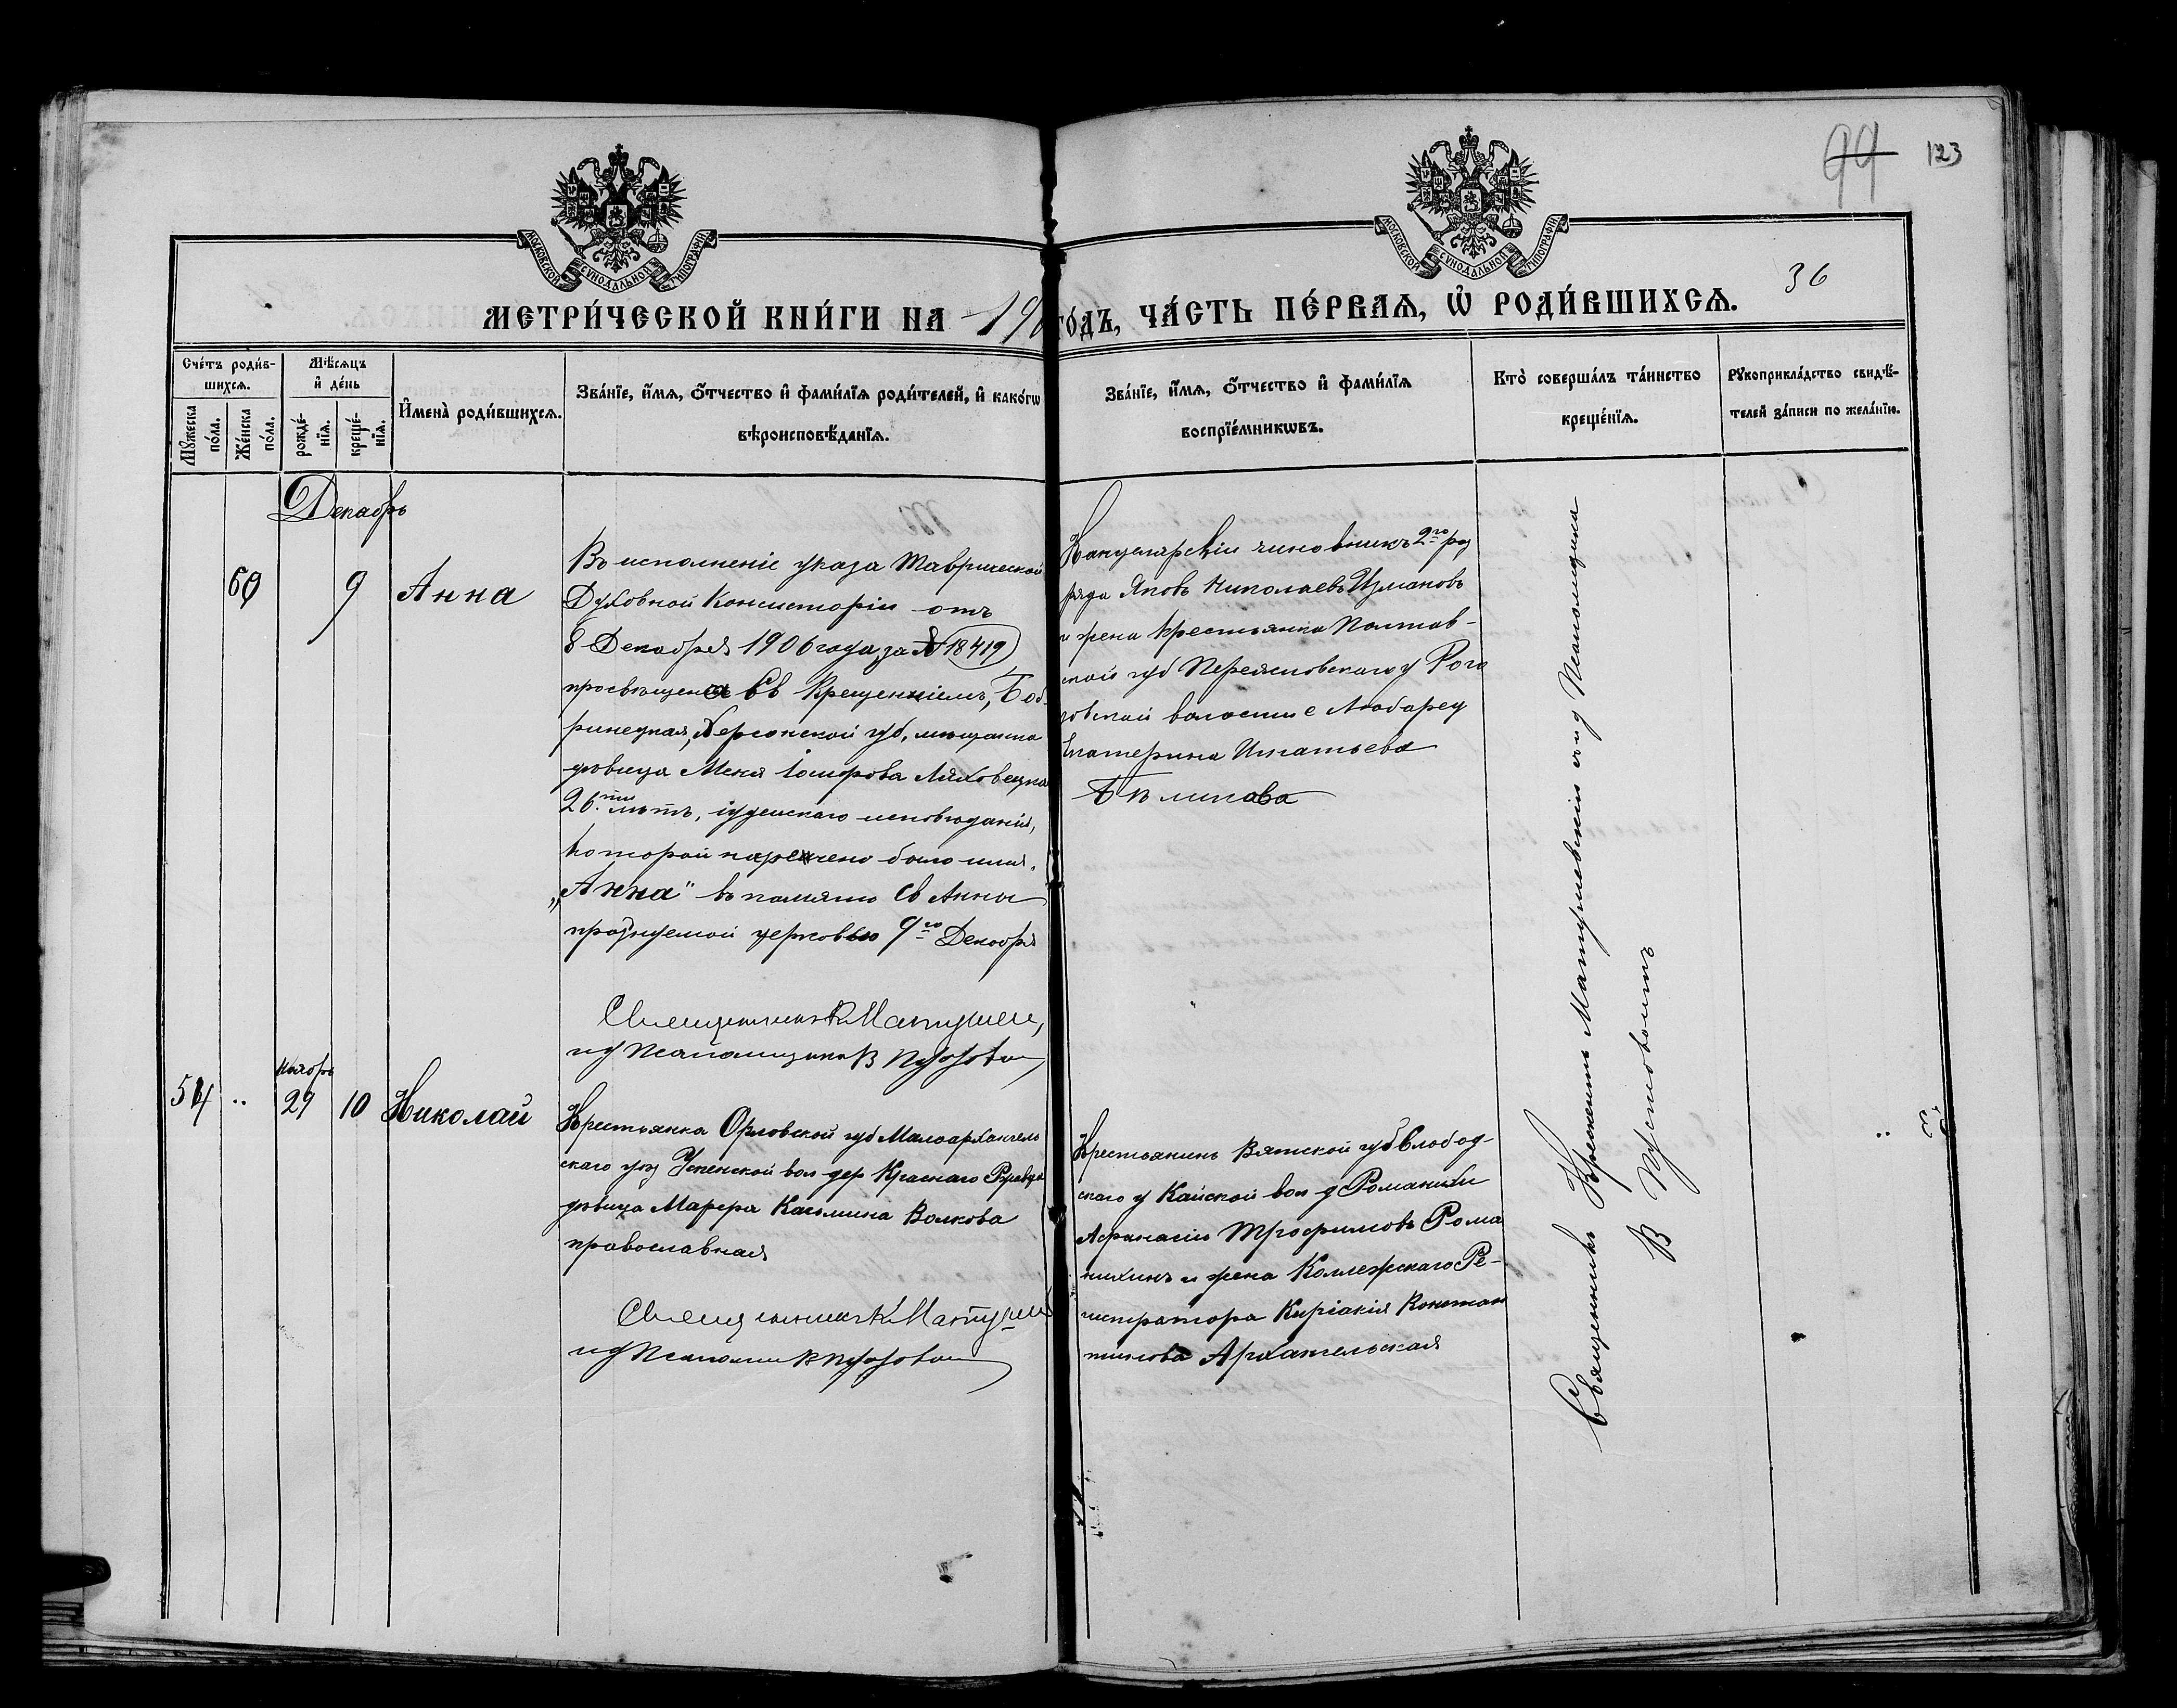 99 123
МОСКОВСКОЙ СѴНОДАЛЬНОЙ ТИПОГРАФІИ.
МОСКОВСКОЙ СѴНОДАЛЬНОЙ ТИПОГРАФІИ.
36
МЕТРИ́ЧЕСКОЙ КНИ́ГИ НА 190 ГО́ДЪ, ЧА́СТЬ ПЕ́РВАѦ, Ѡ҆ РОДИ́ВШИХСѦ.
Сче́тъ роди́в-
шихсѧ.
Мꙋжеска по́ла.
Же́нска по́ла.
Мѣ́сѧцъ
и҆ де́нь
рожде́-
нїѧ.
креще́-
нїѧ.
И҆мена̀ роди́вшихсѧ.
Зва́нїе, и҆́мѧ, ѻ҆́тчество и҆ фами́лїѧ роди́телей, и҆ како́гѡ
вѣроисповѣ́данїѧ.
Зва́нїе, и҆́мѧ, ѻ҆́тчество и҆ фами́лїѧ
воспрїе́мникѡвъ.
Кто̀ соверша́лъ та́инство
креще́нїѧ.
Рꙋкоприкла́дство свидѣ́-
телей за́писи по жела́нїю.
Декабрь
60 9 Анна
Въ исполненіе указа Таврической
Духовной Консисторіи отъ
8 Декабря 1906 года, за № 18419
просвѣщена Св Крещеніемъ, Боб-
ринецкая, Херсонской губ, мѣщанка
дѣвица Меня Іосифова Ляховецкая
26.ти лѣтъ, іудейскаго исповѣданія,
которой наречено было имя.
„Анна" въ память Св Анны
празнуемой церковью 9го Декабря
Священникъ К Матушев
и д Псаломщика В Пустово
Канцелярскій чиновникъ 2го раз
ряда Яковъ Николаевъ Измаковъ
и жена крестьянка Полтав-
ской губ Переясловскаго у Рого
зовской волости с Любарец
Екатерина Игнатьева
Бѣликова
Священникъ Климентъ Матушевскій и д Псаломщика
В Пустовойтъ
Ноябрь
54 .. 29 10 Николай
Крестьянка Орловской губ Малоархангель
скаго уез Успенской вол дер Краснаго
дѣвица Марфа Касьмина Волкова
православная
Священникъ К Матушев
и д Псаломщ В Пустово
Крестьянинъ Вятской губ Слобод-
скаго у Кайской вол д Романихи
Афанасій Трофимовъ Рома
нихинъ и жена Коллежскаго Ре-
гистратора Киріакія Констан
тинова Архангельская